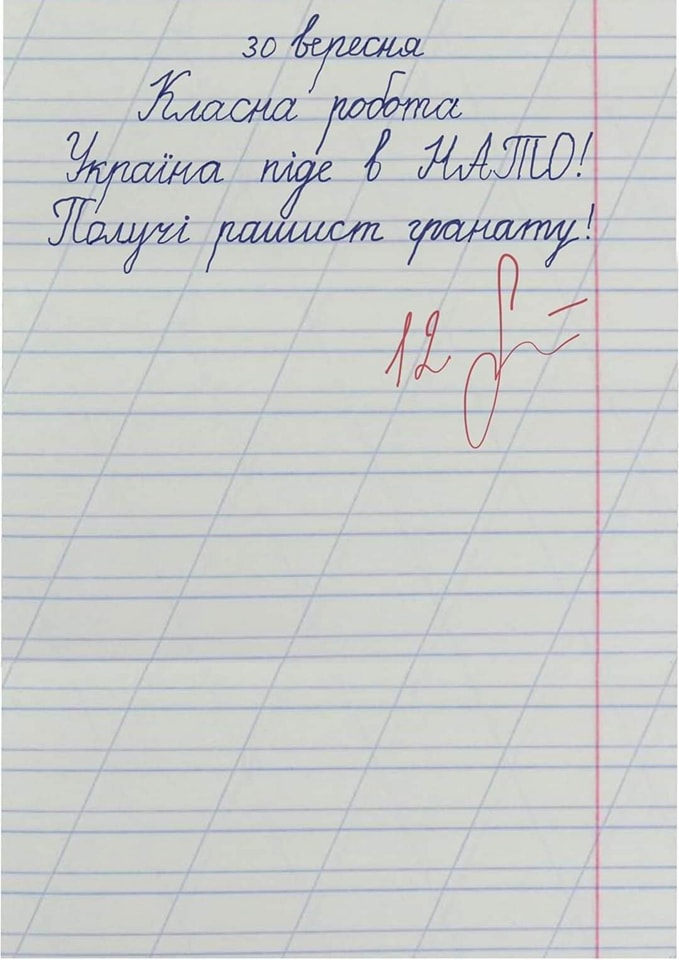 30 вересня
Класна робота
Україна піде в НАТО!
Получі рашист гранату!
12